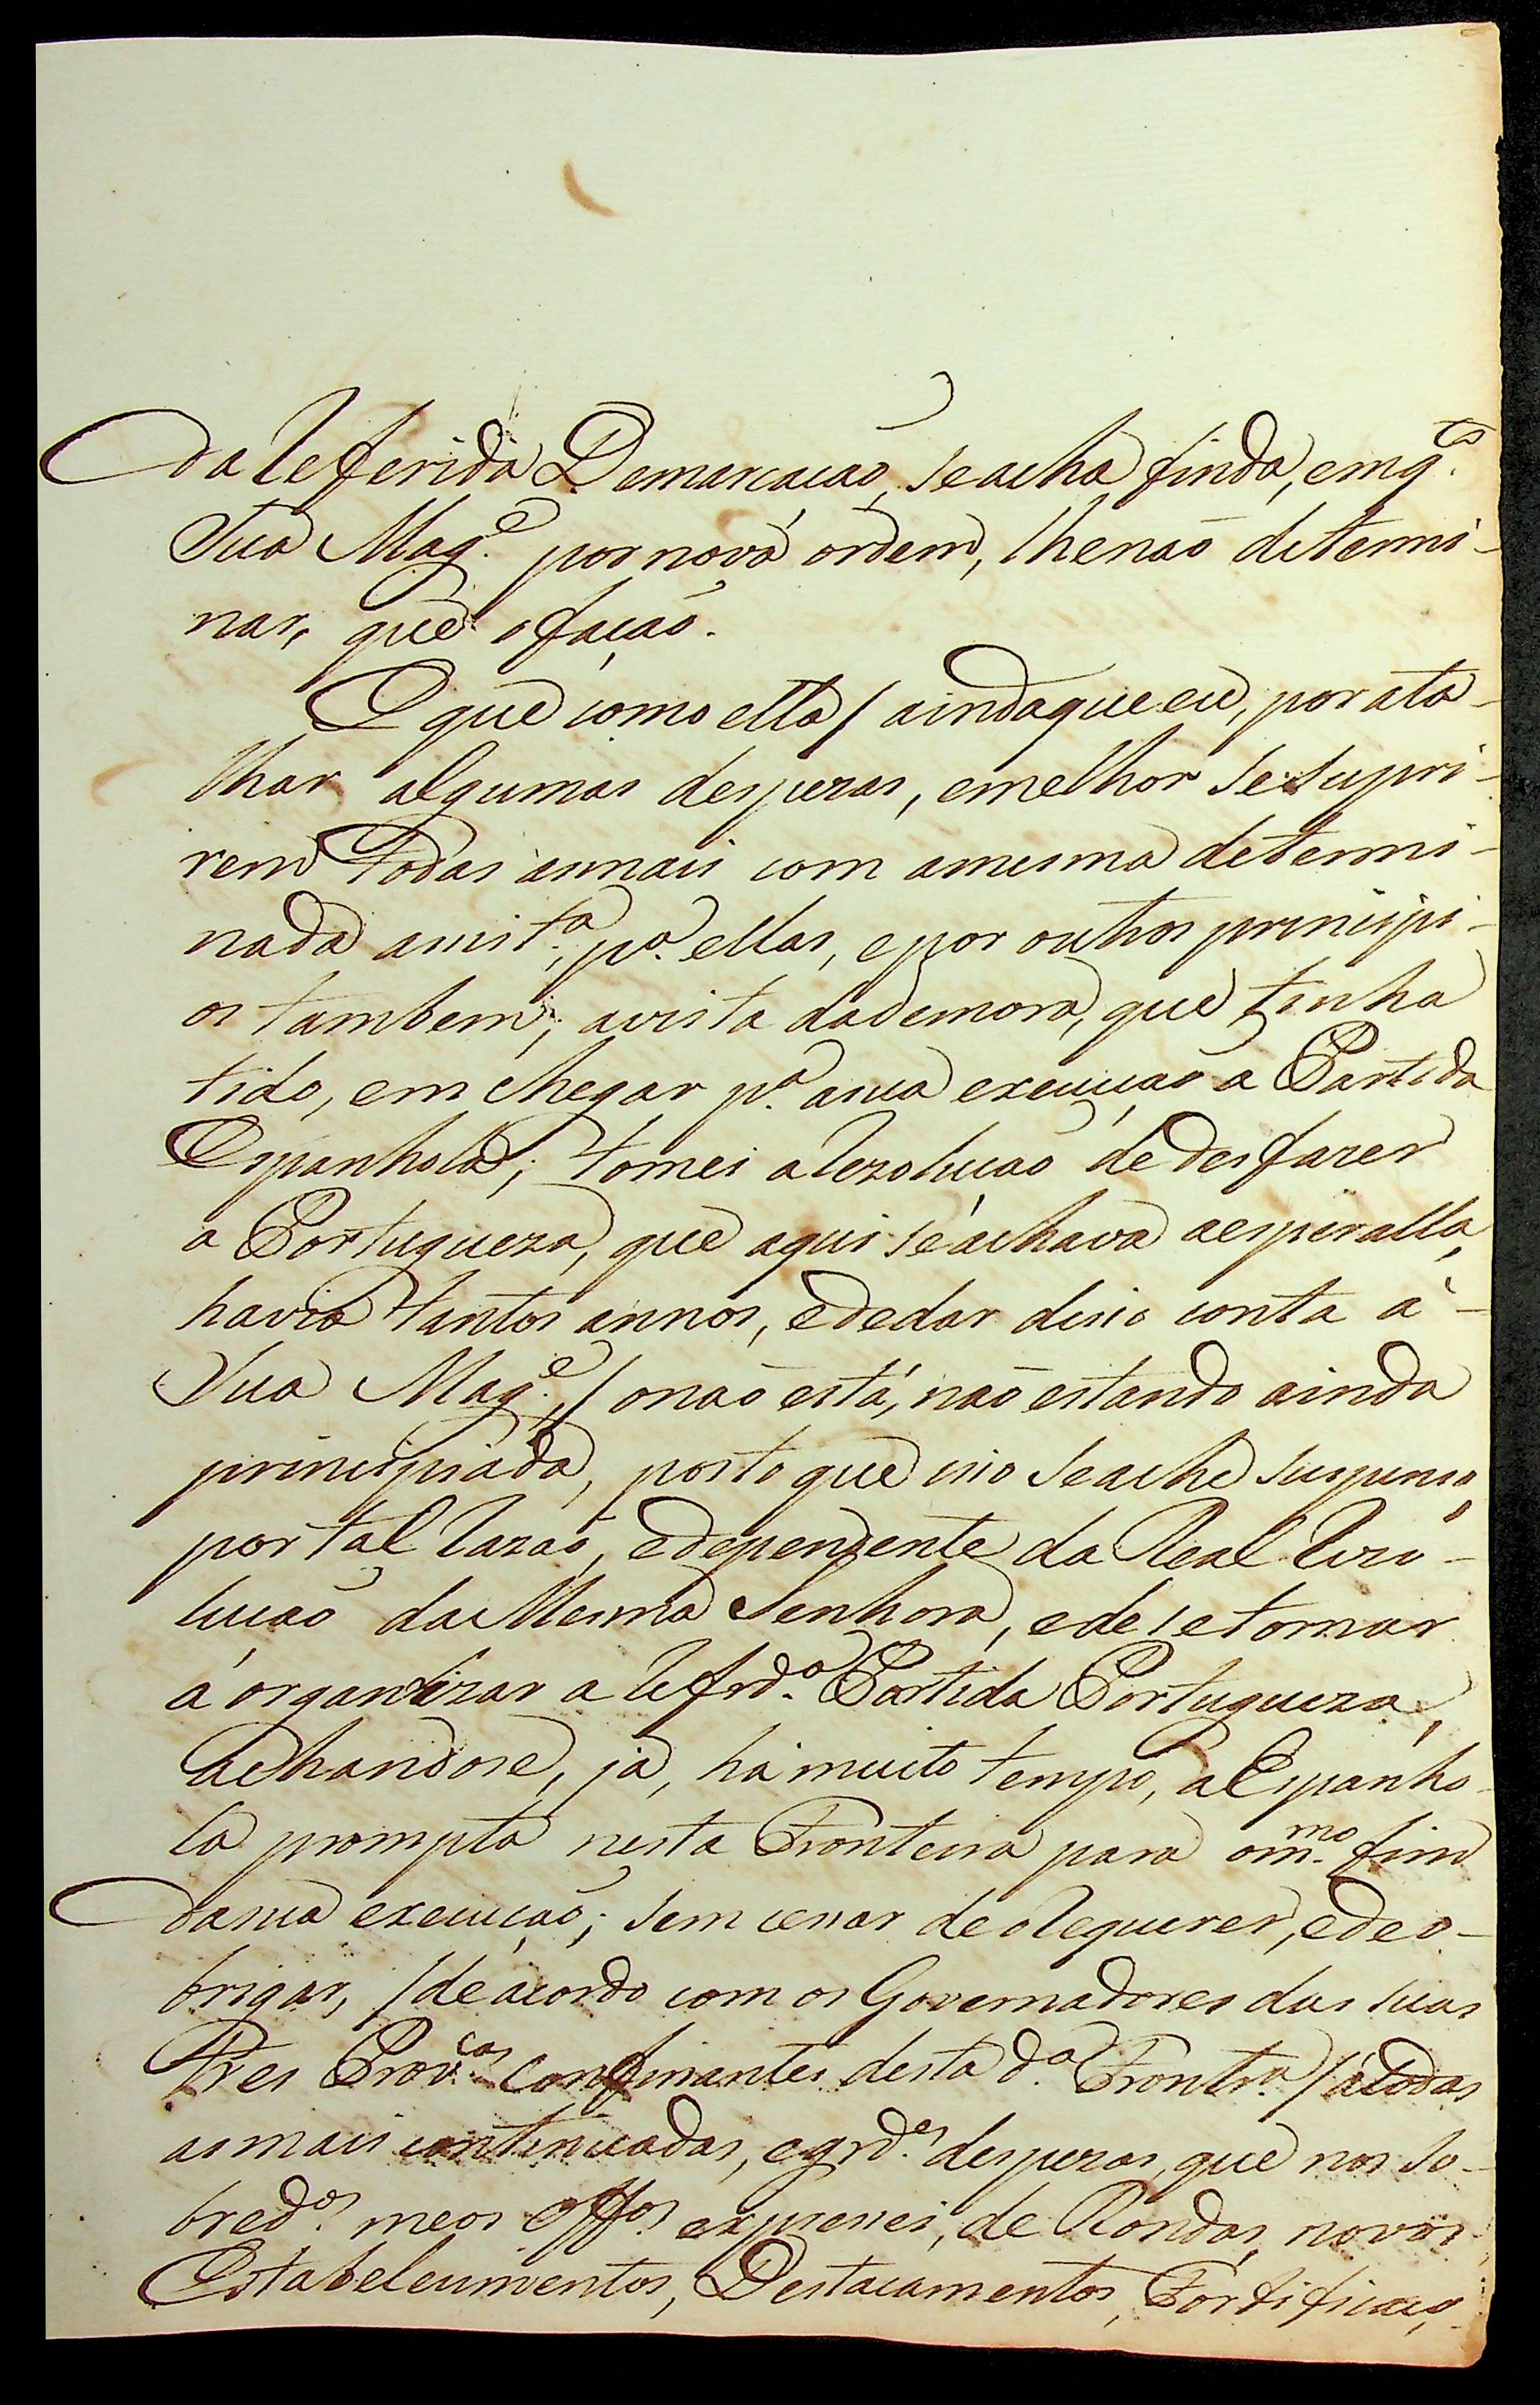 da Referida Demarcação, se acha finda, emq.^to
Sua Mag.^e por nova ordem, lhe não determi-
nar, que o fação.
E que como ella / ainda que eu, por ata-
lhar algumas despezas, e melhor se supri-
rem todas as mais com a mesma determi-
nada assist.^a p.^a ellas, e por outros principi-
os tambem; a vista da demora, que tinha
tido, em chegar p.^a a sua execução a Partida
Espanhola; tomei a Rezolução de desfazer
a Portugueza, que aqui se achava a esperalla,
havia tantos annos, e de dar disso conta a'-
Sua Mag.^e, / o não está, não estando ainda
principiada, posto que isso se ache suspenso
por tal Razão, e dependente da Real Rezo-
lução da Mesma Senhora, e de se tornar
a organizar a Refrd.^a Partida Portugueza,
achandose, já, há muito tempo, a Espanho-
la prompta nesta Fronteira para o m.^mo fim
da sua execução; sem cessar de o Requerer, e de o-
brigar, / de acordo com os Governadores das suas
tres Prov.^cas confinantes desta d.^a Frontr.^a / a todas
as mais continuadas, e grd.^es despezas, que nos so-
bred.^os meos off.^os expressei, de Rondas, novos
Estabelecimentos, Destacamentos, Fortificaç,-